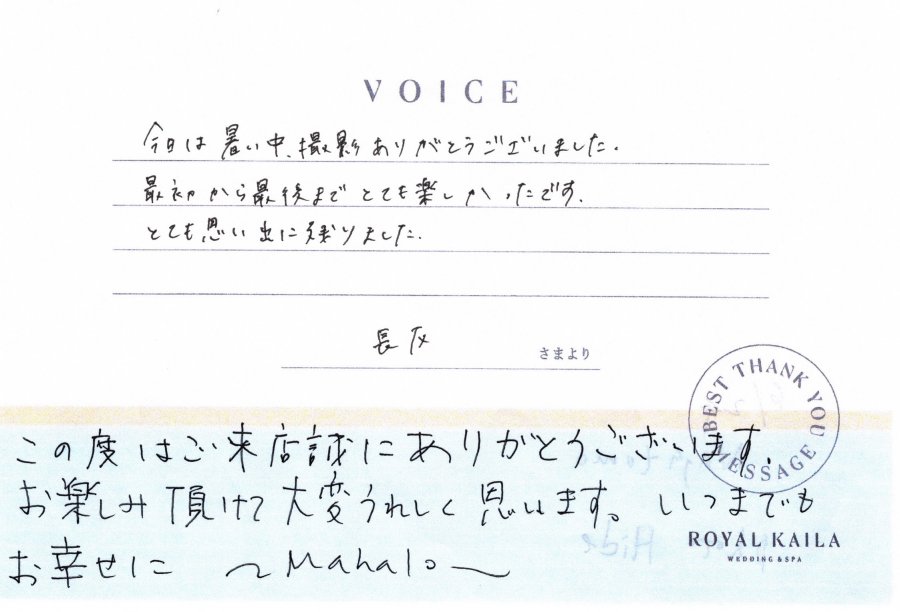 VOICE
今日は暑い中、撮影ありがとうございました。
最初から最後までとても楽しかったです。
とても思い出に残りました。
長友 さまより
BEST THANK YOU MESSAGE
この度はご来店誠にありがとうございます。
お楽しみ頂けて大変うれしく思います。いつまでも
ROYAL KAILA
WEDDING & SPA
お幸せに 〜Mahalo〜